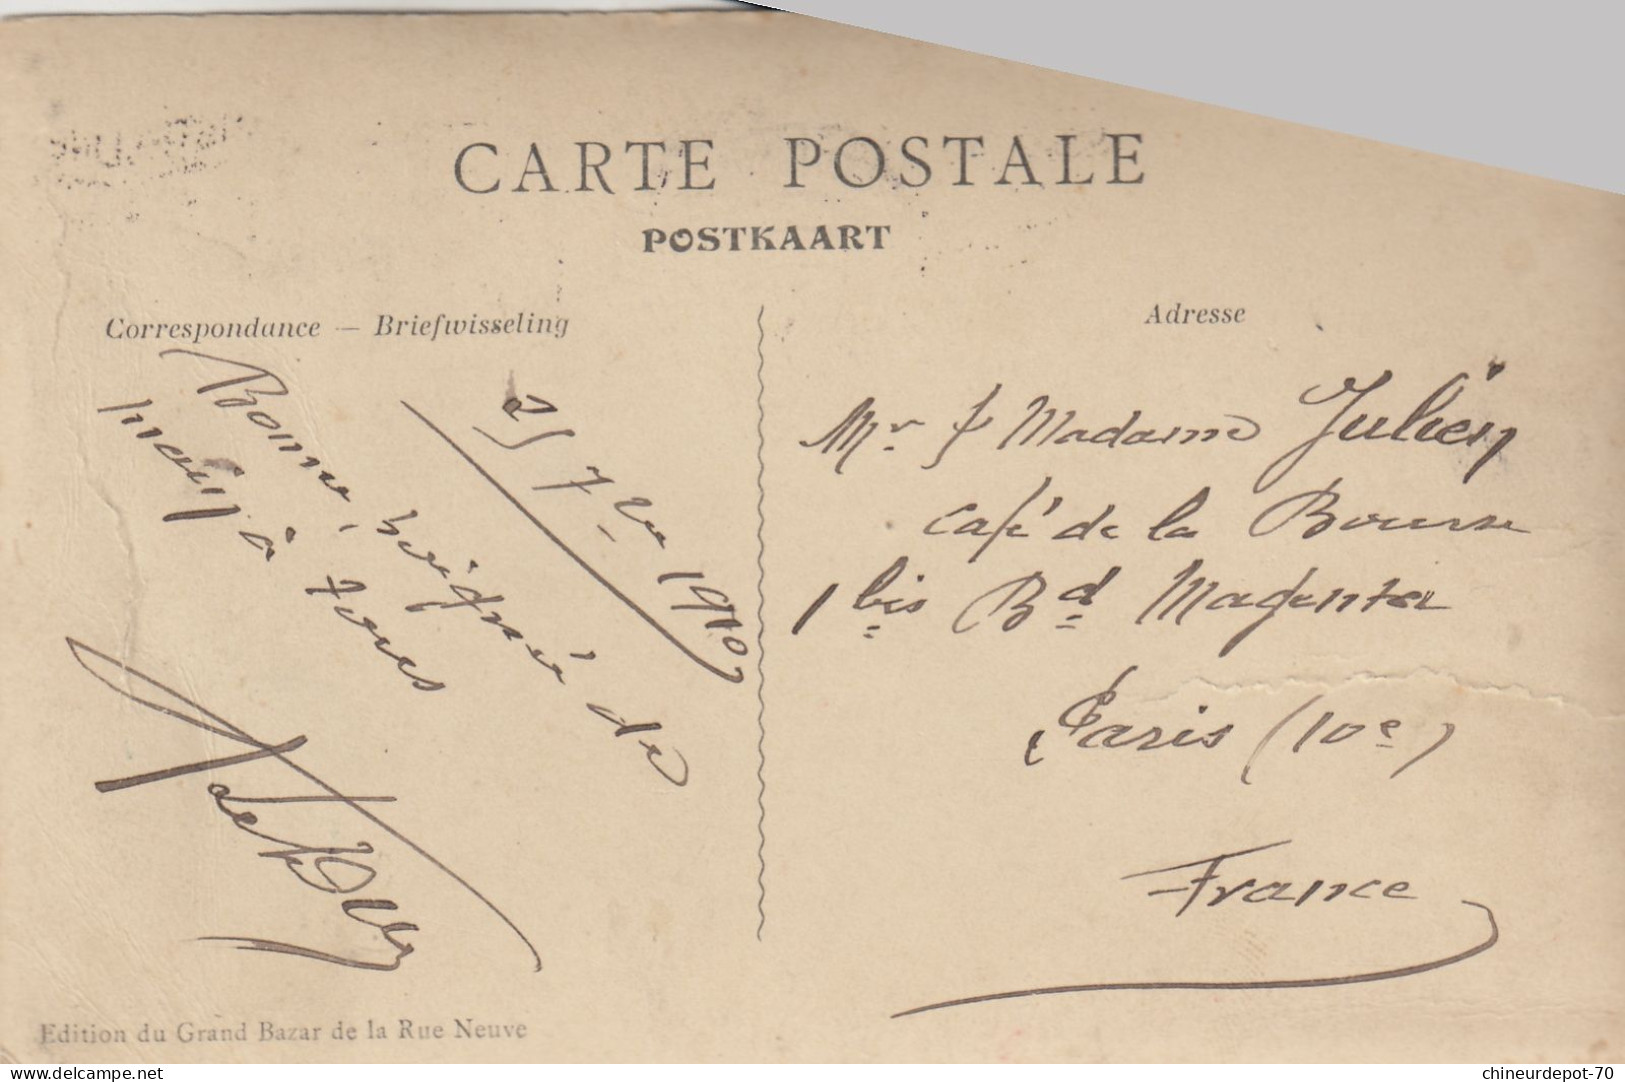 CARTE POSTALE
POSTKAART
Correspondance — Briefwisseling
Adresse
2/ 7bre 1910
Bonne poignée de
main à tous
Mr & Madame Julien
Café de la Bourse
1 bis Bd Magenta
Paris (10e)
France
Edition du Grand Bazar de la Rue Neuve
https://www.delcampe.net
chineurdepot-70